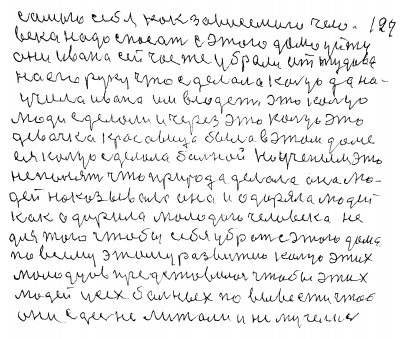 самого себя как зависемого чело- 127
века надо спосат с этого дома уйту
они ивана сей час же убрали от тудова
на его руку что сделала кольцо да на-
учила ивана им владеть, это кольцо
люди сделали и через это кольцо это
девачка красавица была в этом доме
ея кольцо сделала балной но ученым это
непонят что природа делала она лю-
дей наказывала она и одаряла людей
как одарила молодого человека не
для того чтобы себя убрат с этого дома
по всему этому развитию кольцо этих
молодцов представила чтобы этих
людей усех балных по вывести чтоб
они сдес не литали и не мучелис